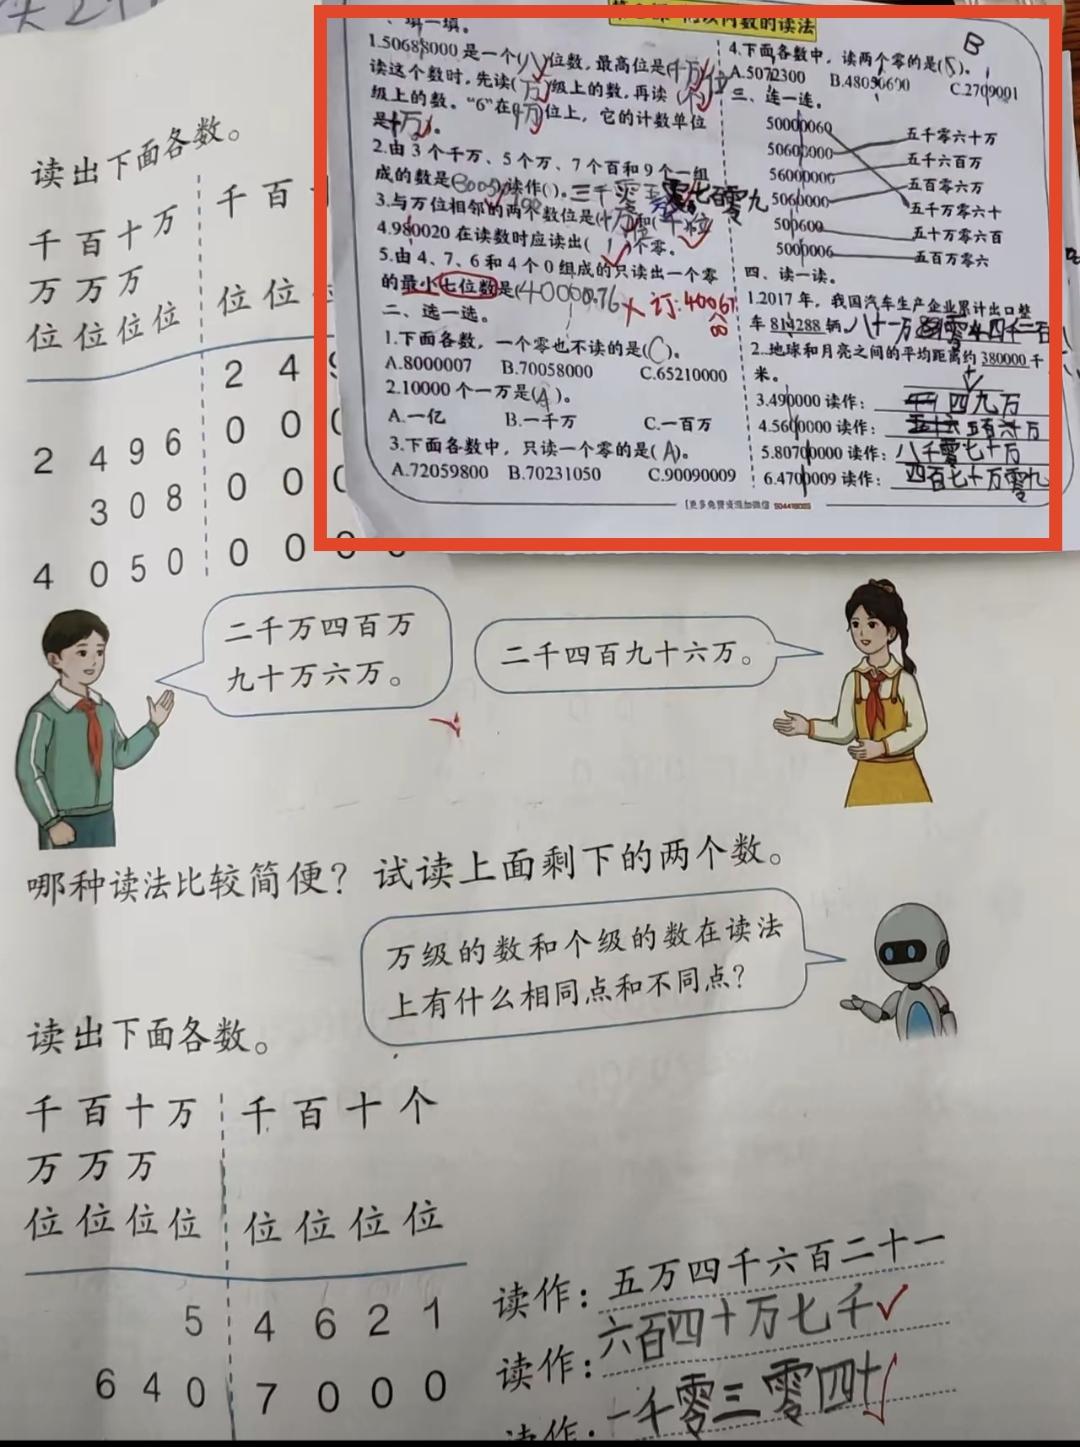 亿以内数的读法
B
一、填一填。
1.50688000是一个(八)位数，最高位是(千万位
读这个数时，先读(万)级上的数，再读(个)
级上的数。“6”在(十万)位上，它的计数单位
是十万)。
2.由3个千万、5个万、7个百和9个一组
成的数是( 读作( )。三千零五万零七百零九
3.与万位相邻的两个数位是(十万位)和(千)位
4.980020在读数时应读出(1)个零。
5.由4、7、6和4个0组成的只读出一个零
的最小七位数是(4000076 订:400678
二、选一选。
1.下面各数，一个零也不读的是(C)。
A.8000007 B.70058000 C.65210000
2.10000个一万是(A)。
A.一亿 B.一千万 C.一百万
3.下面各数中，只读一个零的是(A)。
A.72059800 B.70231050 C.90090009
4.下面各数中，读两个零的是(B)。
A.5072300 B.48050600 C.2709001
三、连一连。
50000060 五千零六十万
50600000 五千六百万
56000000 五百零六万
5060000 五千万零六十
500600 五十万零六百
5000006 五百万零六
四、读一读。
1.2017年，我国汽车生产企业累计出口整
车814288辆。八十一万 四千二百
2.地球和月亮之间的平均距离约380000千
米。
3.490000读作： 四十九万
4.5600000读作： 五百六十万
5.80700000读作：八千零七十万
6.4700009读作：四百七十万零九
更多免费资源加微信
读出下面各数。
千 百 十 万 千 百
万 万 万
位 位 位 位 位 位 位
2 4 9
2 4 9 6 0 0 0
3 0 8 0 0 0
4 0 5 0 0 0 0 0
二千万四百万
九十万六万。
二千四百九十六万。
哪种读法比较简便？试读上面剩下的两个数。
万级的数和个级的数在读法
上有什么相同点和不同点？
读出下面各数。
千 百 十 万 千 百 十 个
万 万 万
位 位 位 位 位 位 位 位
5 4 6 2 1 读作：五万四千六百二十一
6 4 0 7 0 0 0 读作：六百四十万七千
读作：一千零三零四十